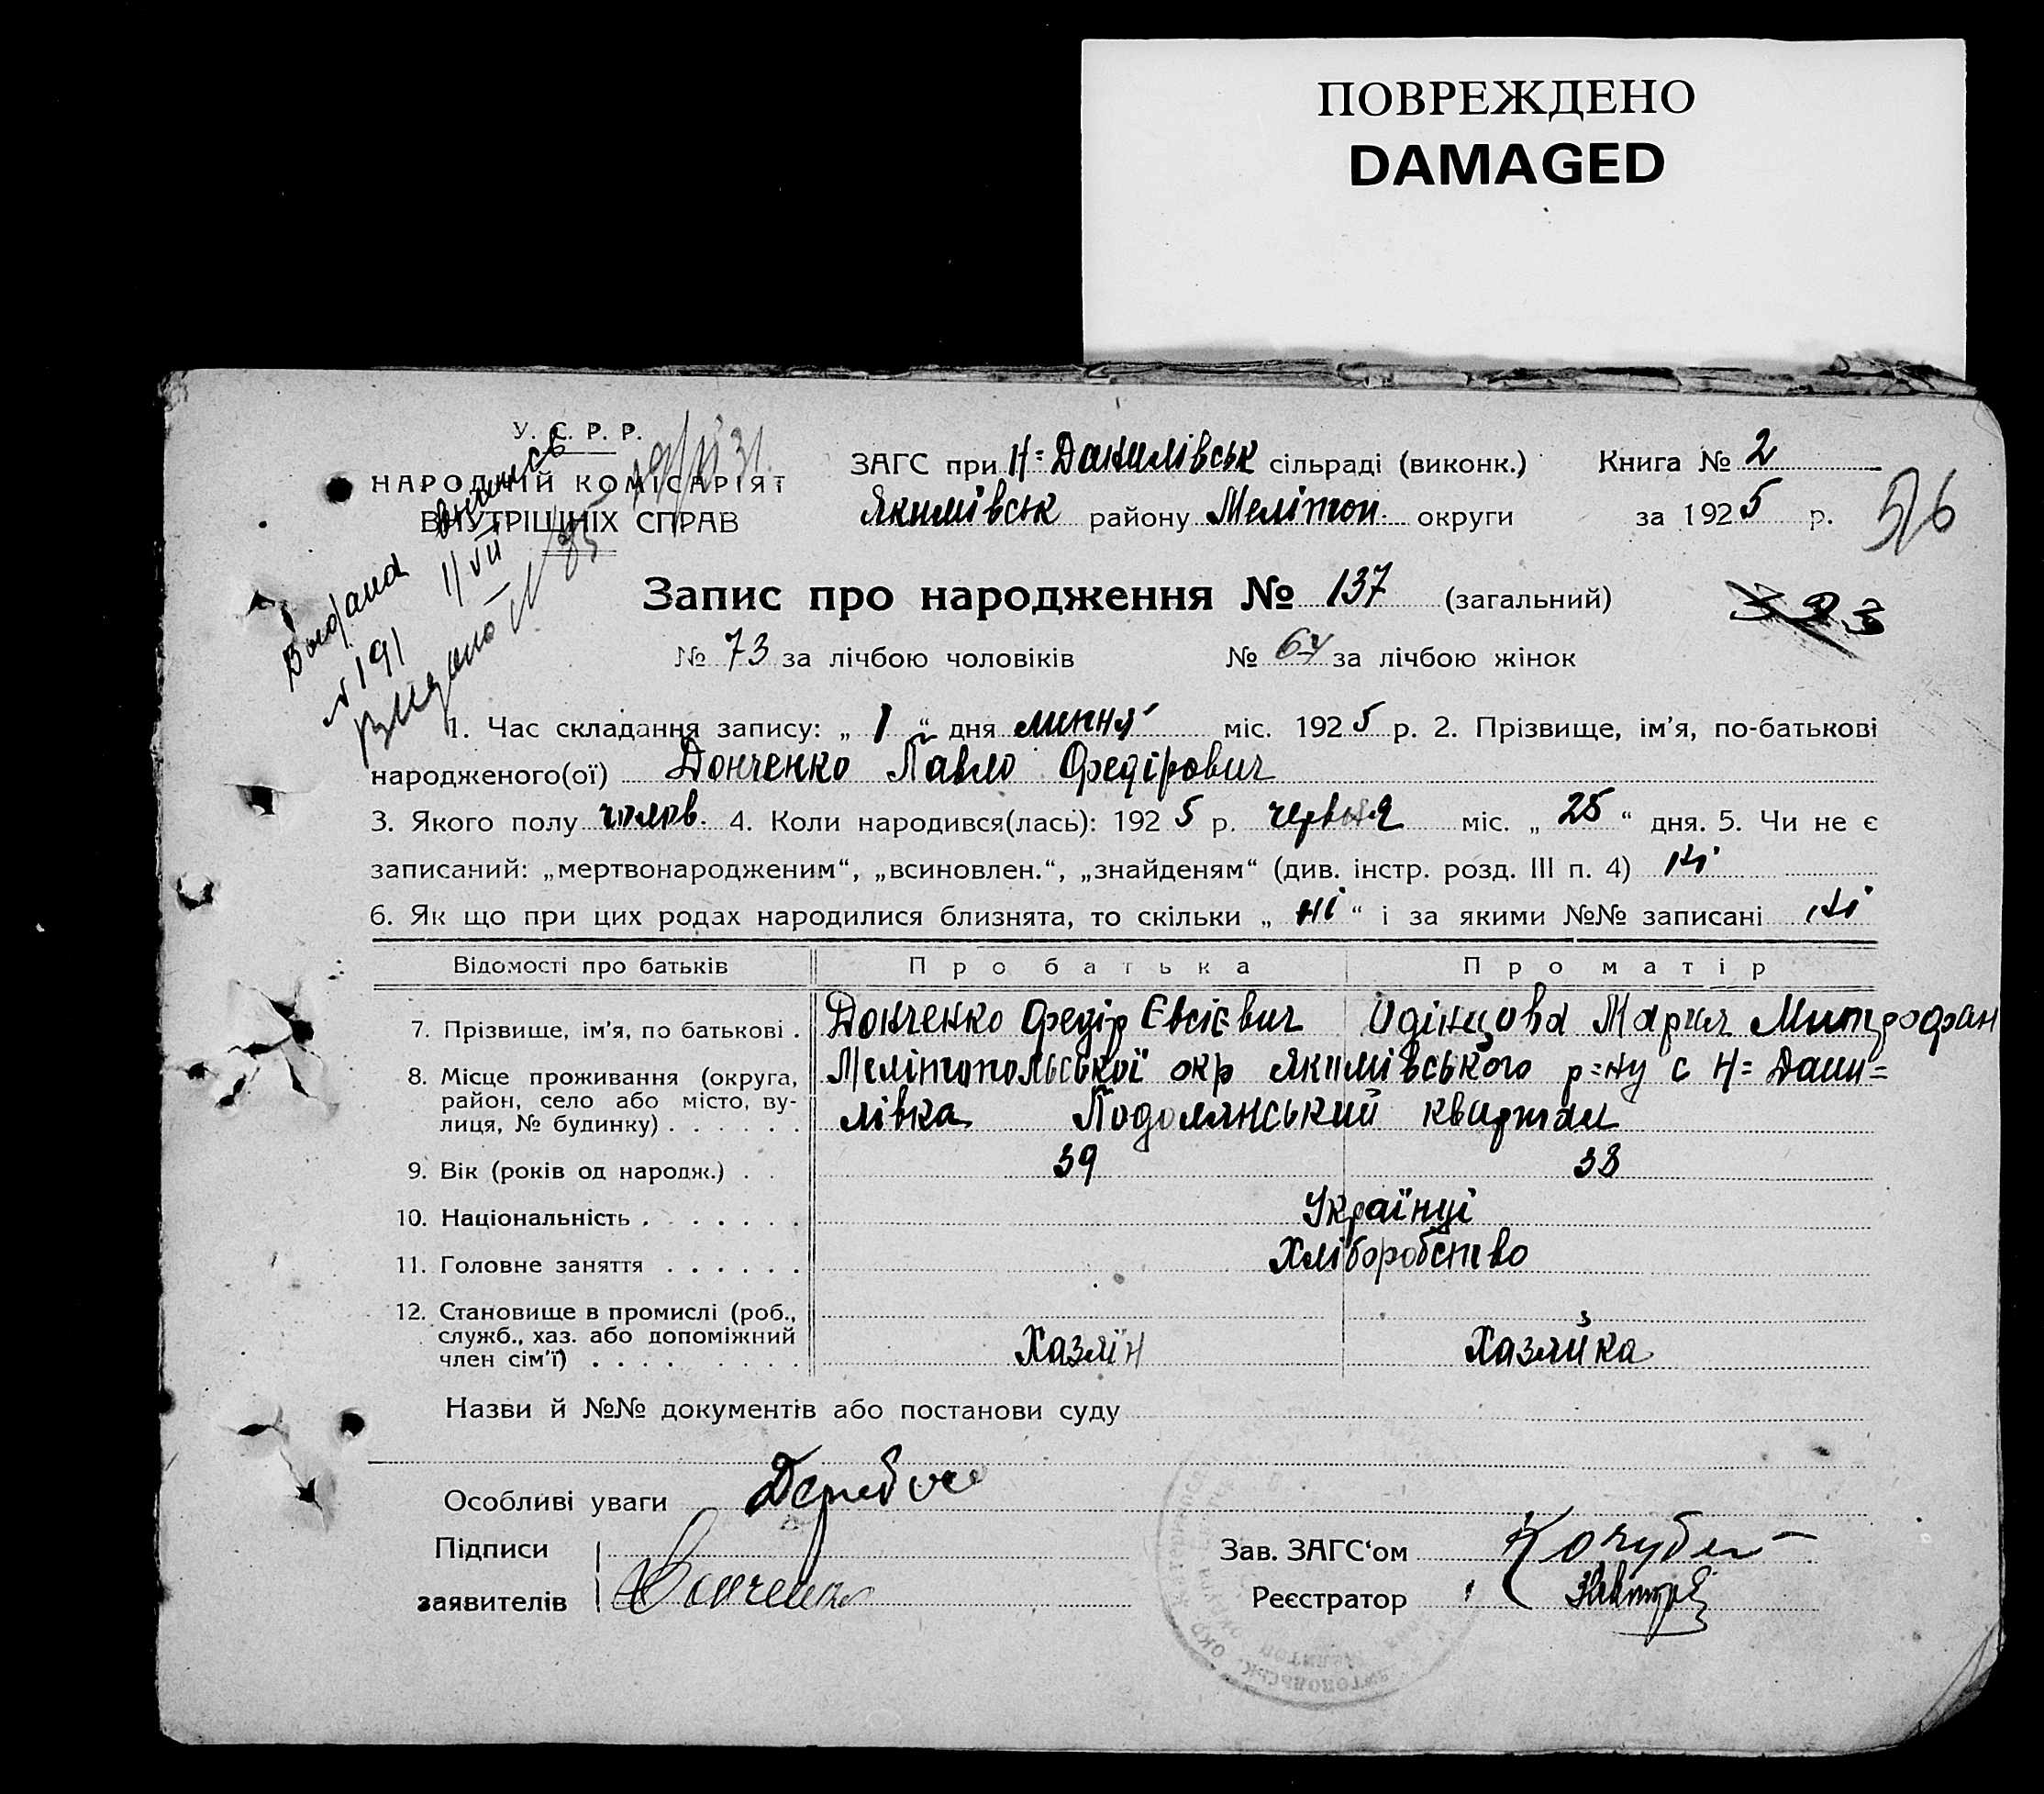 ПОВРЕЖДЕНО
DAMAGED
У. С. Р. Р.
НАРОДНІЙ КОМІСАРІЯТ
ВНУТРІШНІХ СПРАВ
ЗАГС при Н=Данилівськ сільраді (виконк.)
Якимівськ району Мелітоп. округи
Книга № 2
за 1925 р.
Запис про народження № 137 (загальний)
№ 73 за лічбою чоловіків № 64 за лічбою жінок
1. Час складання запису: „ 1 “ дня липня міс. 1925 р. 2. Прізвище, ім'я, по-батькові
народженого(ої) Донченко Павло Федірович
3. Якого полу чолов. 4. Коли народився(лась): 1925 р. червня міс. „ 25 “ дня. 5. Чи не є
записаний: „мертвонародженим“, „всиновлен.“, „знайденям“ (див. інстр. розд. III п. 4) ні
6. Як що при цих родах народилися близнята, то скільки „ ні “ і за якими №№ записані ні
Відомості про батьків Про батька Про матір
7. Прізвище, ім'я, по батькові . Донченко Федір Євсієвич Одінцова Мария Митрофан
8. Місце проживання (округа, Мелітопольської окр Якимівського р=ну с Н=Дани=
район, село або місто, ву-
лиця, № будинку) . . . . . . лівка Подолянський квартал
9. Вік (років од народж.) . . 39 38
10. Національність . . . . . . . Українці
11. Головне заняття . . . . . . Хліборобство
12. Становище в промислі (роб.,
служб., хаз. або допоміжний
член сім'ї) . . . . . . . . . Хазяїн Хазяйка
Назви й №№ документів або постанови суду
Особливі уваги
Підписи
заявителів Донченко
Зав. ЗАГС‘ом Кочубей
Реєстратор
№ 191
1/VII